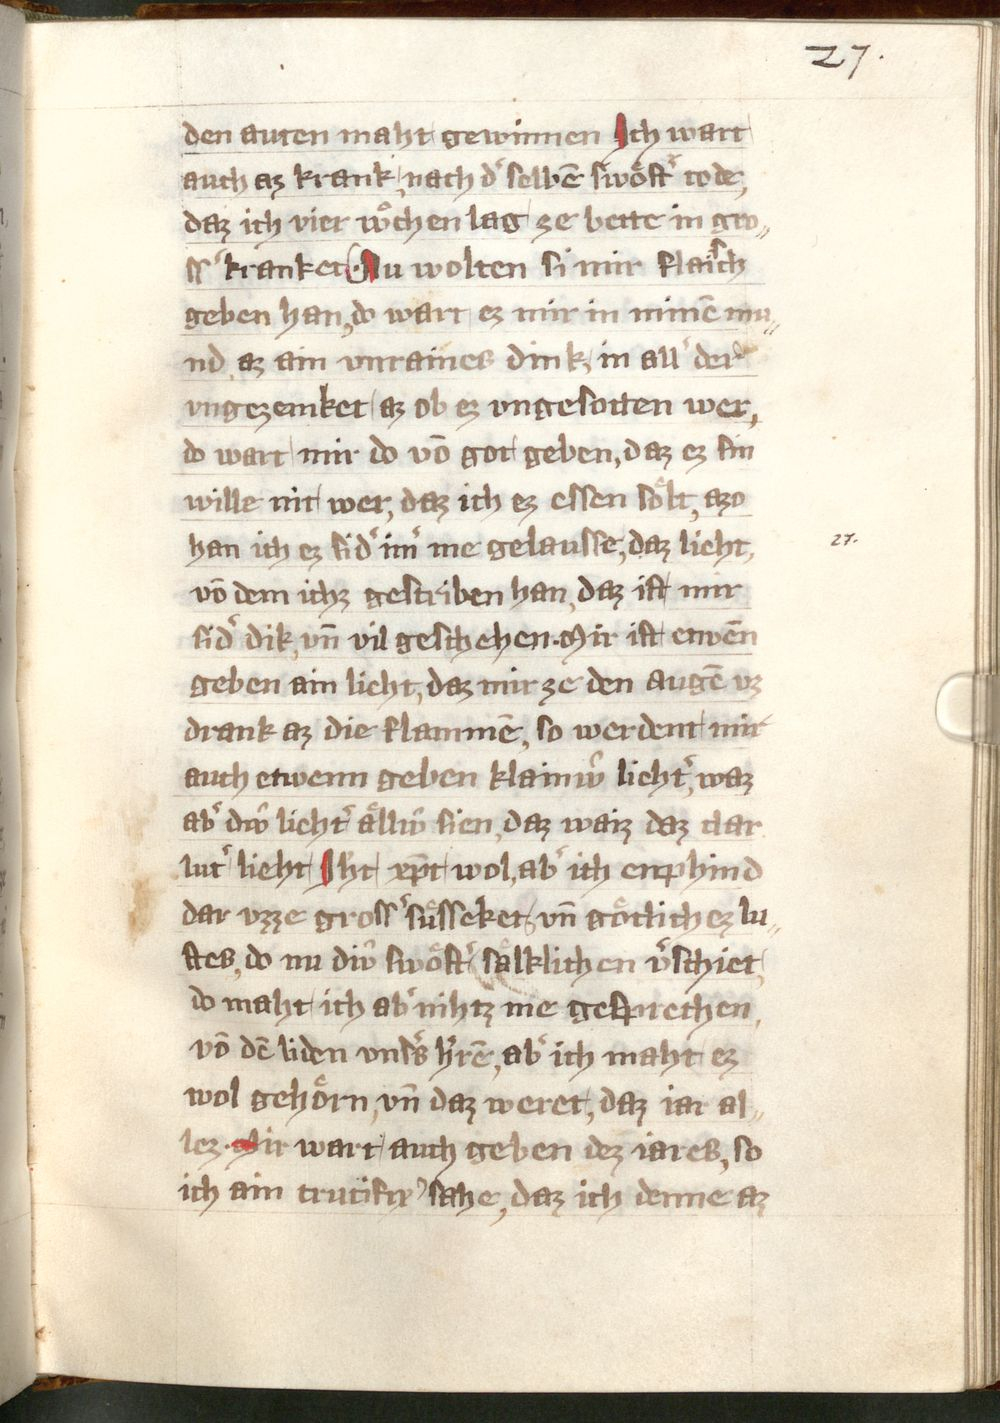 27.
den auren maht gewinnen Ich wart
auch az krank, nach d͛ selbē swoͤst͛ tode,
daz ich vier woͤchen lag ze bette in gro„
ss͛ kranket. Nu wolten si mir flaisch
geben han, do wart ez mir in minē mu„
nd, az ain vnraines dink, in all͛ der
vngezemket, az ob ez vngesotten wer,
do wart mir do vō got geben, daz ez sin
wille nit wer, daz ich ez essen soͤlt, azo
han ich ez sid͛ im͛ me gelausse, daz lieht,
27.
vō dem ichz gescriben han, daz ist mir
sid͛ dik, vn̄ vil geschehen. Mir ist etwēn
geben ain lieht, daz mir ze den augē vz
drank az die flammē, so werdent mir
auch etwenn geben klainiv̂ lieht͛, waz
ab͛ div̂ lieht͛ aͤlliv̂ sien, daz waiz daz clar
lut͛ lieht Ih̄t xp̄t wol, ab͛ ich enphind
dar vzze gross͛ suͤsseket, vn̄ goͤtlichez lu„
stes, do nu div̂ swoͤst͛ saͤlklichen v͛schiet,
do maht ich ab͛ nihtz me gesprechen,
vō dē liden vns͛s h͛rē, ab͛ ich maht ez
wol gehoͤrn, vn̄ daz weret, daz iar al„
lez. Mir wart auch geben dez iares, so
ich ain crucifix sahe, daz ich denne az